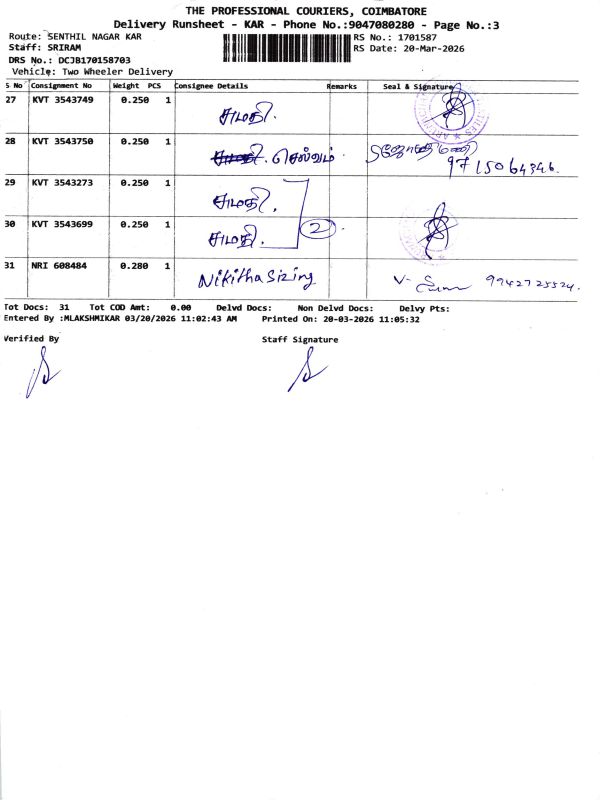 THE PROFESSIONAL COURIERS, COIMBATORE
Delivery Runsheet - KAR - Phone No.:9047080280 - Page No.:3
Route: SENTHIL NAGAR KAR
RS No.: 1701587
Staff: SRIRAM
RS Date: 20-Mar-2026
DRS No.: DCJB170158703
Vehicle: Two Wheeler Delivery
S No Consignment No Weight PCS Consignee Details Remarks Seal & Signature
27 KVT 3543749 0.250 1
28 KVT 3543750 0.250 1 செல்வம்
9715064346.
29 KVT 3543273 0.250 1
30 KVT 3543699 0.250 1 2
31 NRI 608484 0.280 1 Nikitha Sizing V- 9942725524.
Tot Docs: 31 Tot COD Amt: 0.00 Delvd Docs: Non Delvd Docs: Delvy Pts:
Entered By :MLAKSHMIKAR 03/20/2026 11:02:43 AM Printed On: 20-03-2026 11:05:32
Verified By Staff Signature